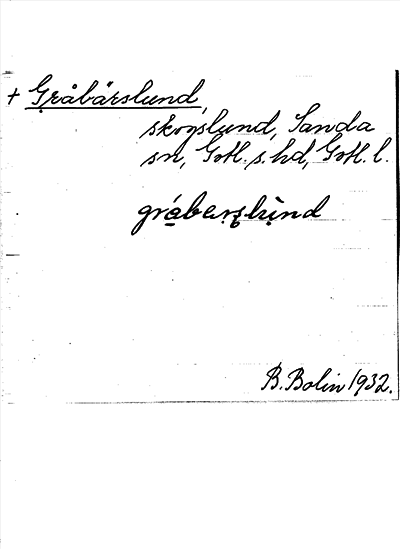 + Gråbärslund,
skogslund, Sanda
sn, Gotl. s. hd, Gotl. l.
grábęrslùnd
B. Bolin 1932.